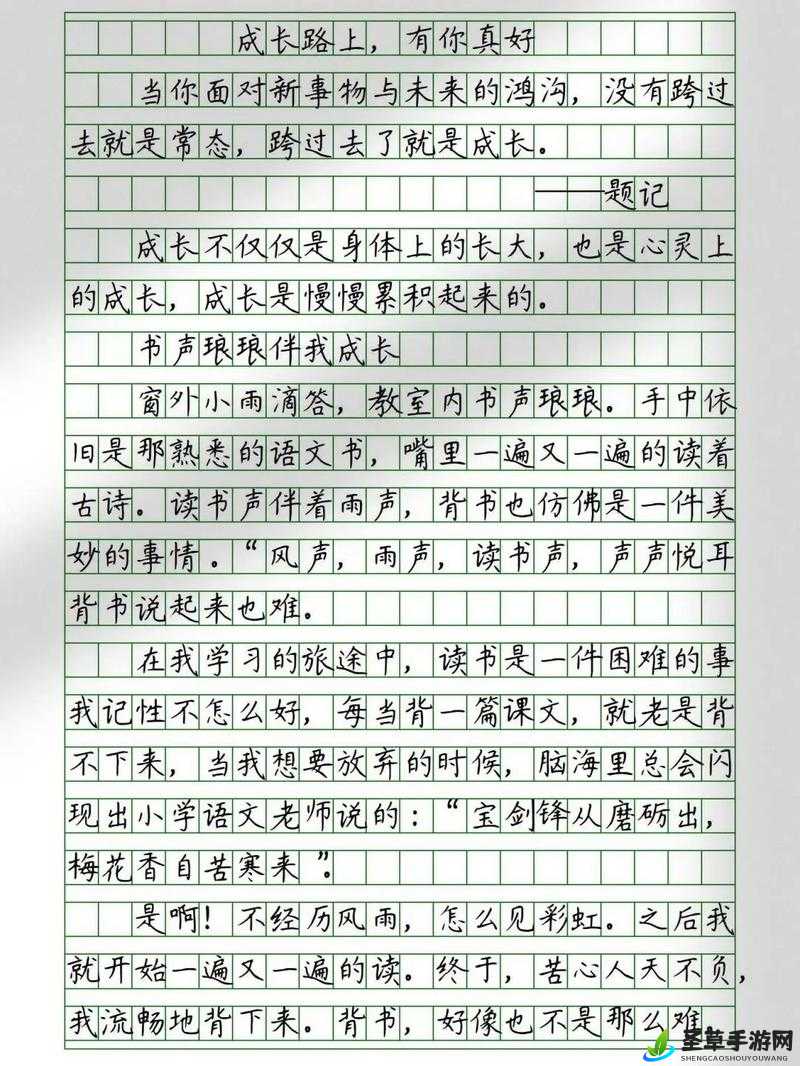 成长路上，有你真好
当你面对新事物与未来的鸿沟，没有跨过
去就是常态，跨过去了就是成长。
——题记
成长不仅仅是身体上的长大，也是心灵上
的成长，成长是慢慢累积起来的。
书声琅琅伴我成长
窗外小雨滴答，教室内书声琅琅。手中依
旧是那熟悉的语文书，嘴里一遍又一遍的读着
古诗。读书声伴着雨声，背书也仿佛是一件美
妙的事情。“风声，雨声，读书声，声声悦耳
背书说起来也难。
在我学习的旅途中，读书是一件困难的事
我记性不怎么好，每当背一篇课文，就老是背
不下来，当我想要放弃的时候，脑海里总会闪
现出小学语文老师说的：“宝剑锋从磨砺出，
梅花香自苦寒来”。
是啊！不经历风雨，怎么见彩虹。之后我
就开始一遍又一遍的读。终于，苦心人天不负，
我流畅地背下来。背书，好像也不是那么难
圣草手游网
SHENGCAOSHOUYOUWANG